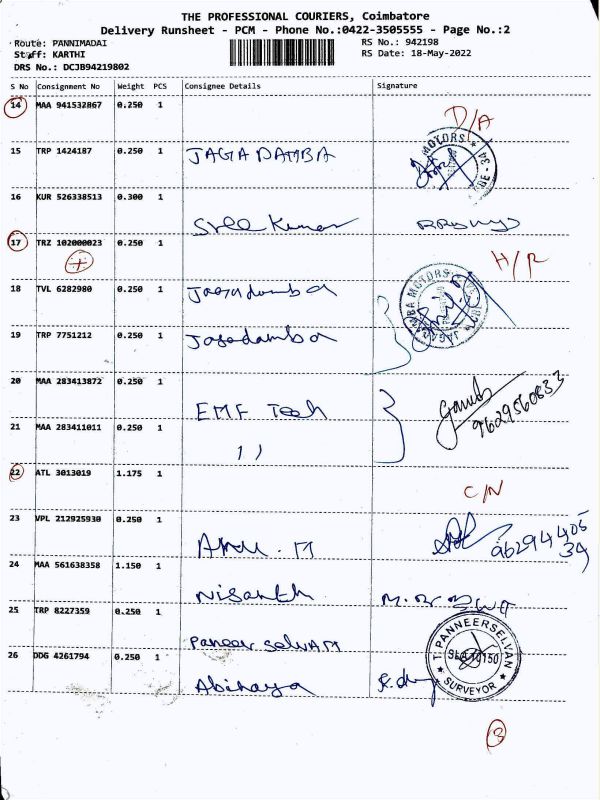 THE PROFESSIONAL COURIERS, Coimbatore
Delivery Runsheet - PCM - Phone No.:0422-3505555 - Page No.:2
Route: PANNIMADAI RS No.: 942198
Staff: KARTHI RS Date: 18-May-2022
DRS No.: DCJB94219802
S No Consignment No Weight PCS Consignee Details Signature
14 MAA 941532867 0.250 1 D/A
15 TRP 1424187 0.250 1 JAGADAMBA
MOTORS
16 KUR 526338513 0.300 1
Sree Kumar
17 TRZ 102000023 0.250 1 H/R
18 TVL 6282980 0.250 1 Jagadamba
MOTORS
19 TRP 7751212 0.250 1 Jagadamba
20 MAA 283413872 0.250 1
EMF Tech 9629560833
21 MAA 283411011 0.250 1
11
22 ATL 3013019 1.175 1 C/N
23 VPL 212925930 0.250 1
Arul . M 96294405
39
24 MAA 561638358 1.150 1
Nisanth
25 TRP 8227359 0.250 1
Paneer selvAM
T. PANNEERSELVAN
SURVEYOR
26 DDG 4261794 0.250 1
Abinaya
3